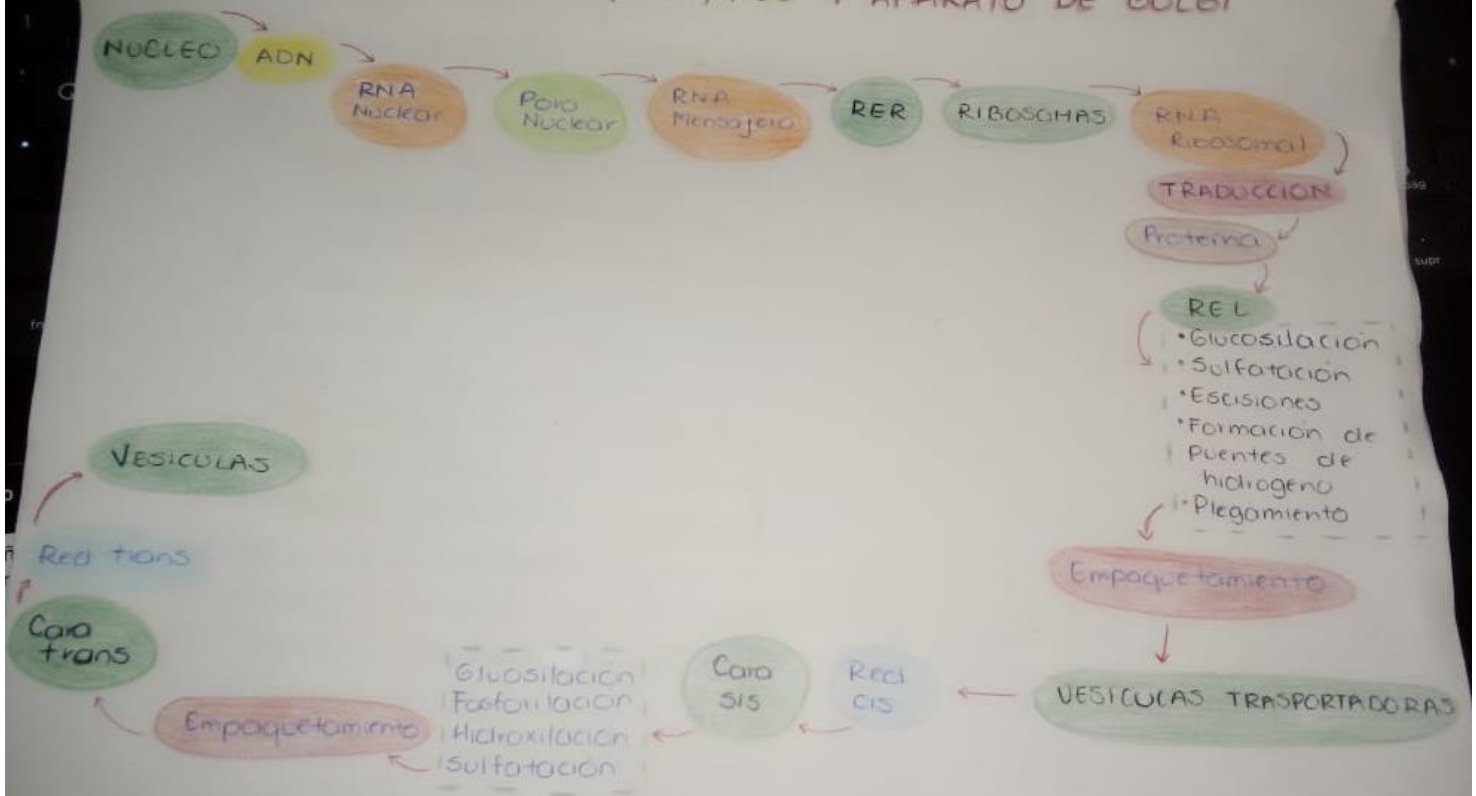 Y APARATO DE GOLGI
NUCLEO
ADN
RNA
Nuclear
Poro
Nuclear
RNA
Mensajero
RER
RIBOSOMAS
RNA
Ribosomal
TRADUCCION
Proteína
REL
•Glucosilación
•Sulfatación
•Escisiones
•Formación de
Puentes de
hidrogeno
•Plegamiento
Empaquetamiento
VESICULAS TRASPORTADORAS
Red
CIS
Cara
SIS
Gluosilación
Fosforilación
Hidroxilación
Sulfatación
Empaquetamiento
Cara
trans
Red trans
VESICULAS
supr